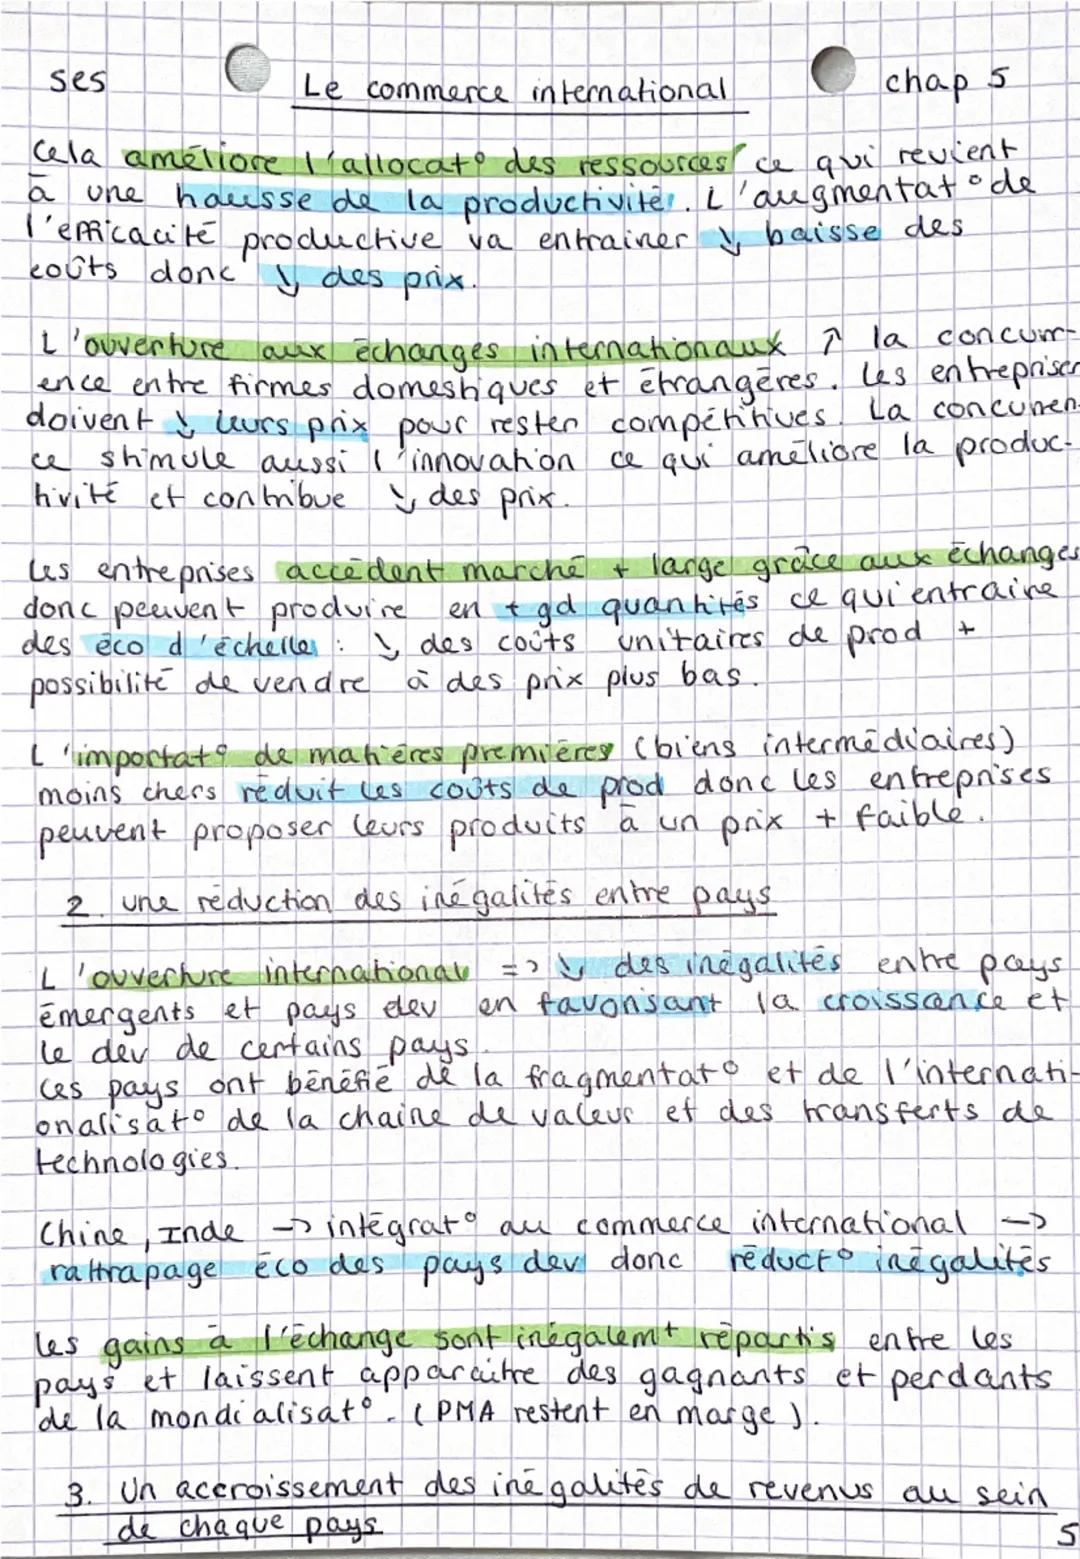 ses Le commerce international chap 5
Cela améliore l'allocat° des ressources ce qui revient
à une hausse de la productivité. L'augmentat° de
l'efficacité productive va entrainer ↓ baisse des
coûts donc ↓ des prix.
L'ouverture aux échanges internationaux ↗ la concurr-
ence entre firmes domestiques et étrangères. Les entreprises
doivent ↓ leurs prix pour rester compétitives. La concurren-
ce stimule aussi l'innovation ce qui améliore la produc-
tivité et contribue ↓ des prix.
Les entreprises accèdent marché + large grâce aux échanges
donc peuvent produire en + gd quantités ce qui entraine
des éco d'échelle : ↓ des coûts unitaires de prod +
possibilité de vendre à des prix plus bas.
L'importat° de matières premières (biens intermédiaires)
moins chers réduit les coûts de prod donc les entreprises
peuvent proposer leurs produits à un prix + faible.
2. une réduction des inégalités entre pays
L'ouverture international => ↓ des inégalités entre pays
émergents et pays dev en favorisant la croissance et
le dev de certains pays.
Ces pays ont bénéfié de la fragmentat° et de l'internati-
onalisat° de la chaine de valeur et des transferts de
technologies.
Chine, Inde -> intégrat° au commerce international ->
rattrapage éco des pays dev donc réduct° inégalités
Les gains à l'échange sont inégalemt répartis entre les
pays et laissent apparaitre des gagnants et perdants
de la mondialisat°. (PMA restent en marge).
3. Un accroissement des inégalités de revenus au sein
de chaque pays
5